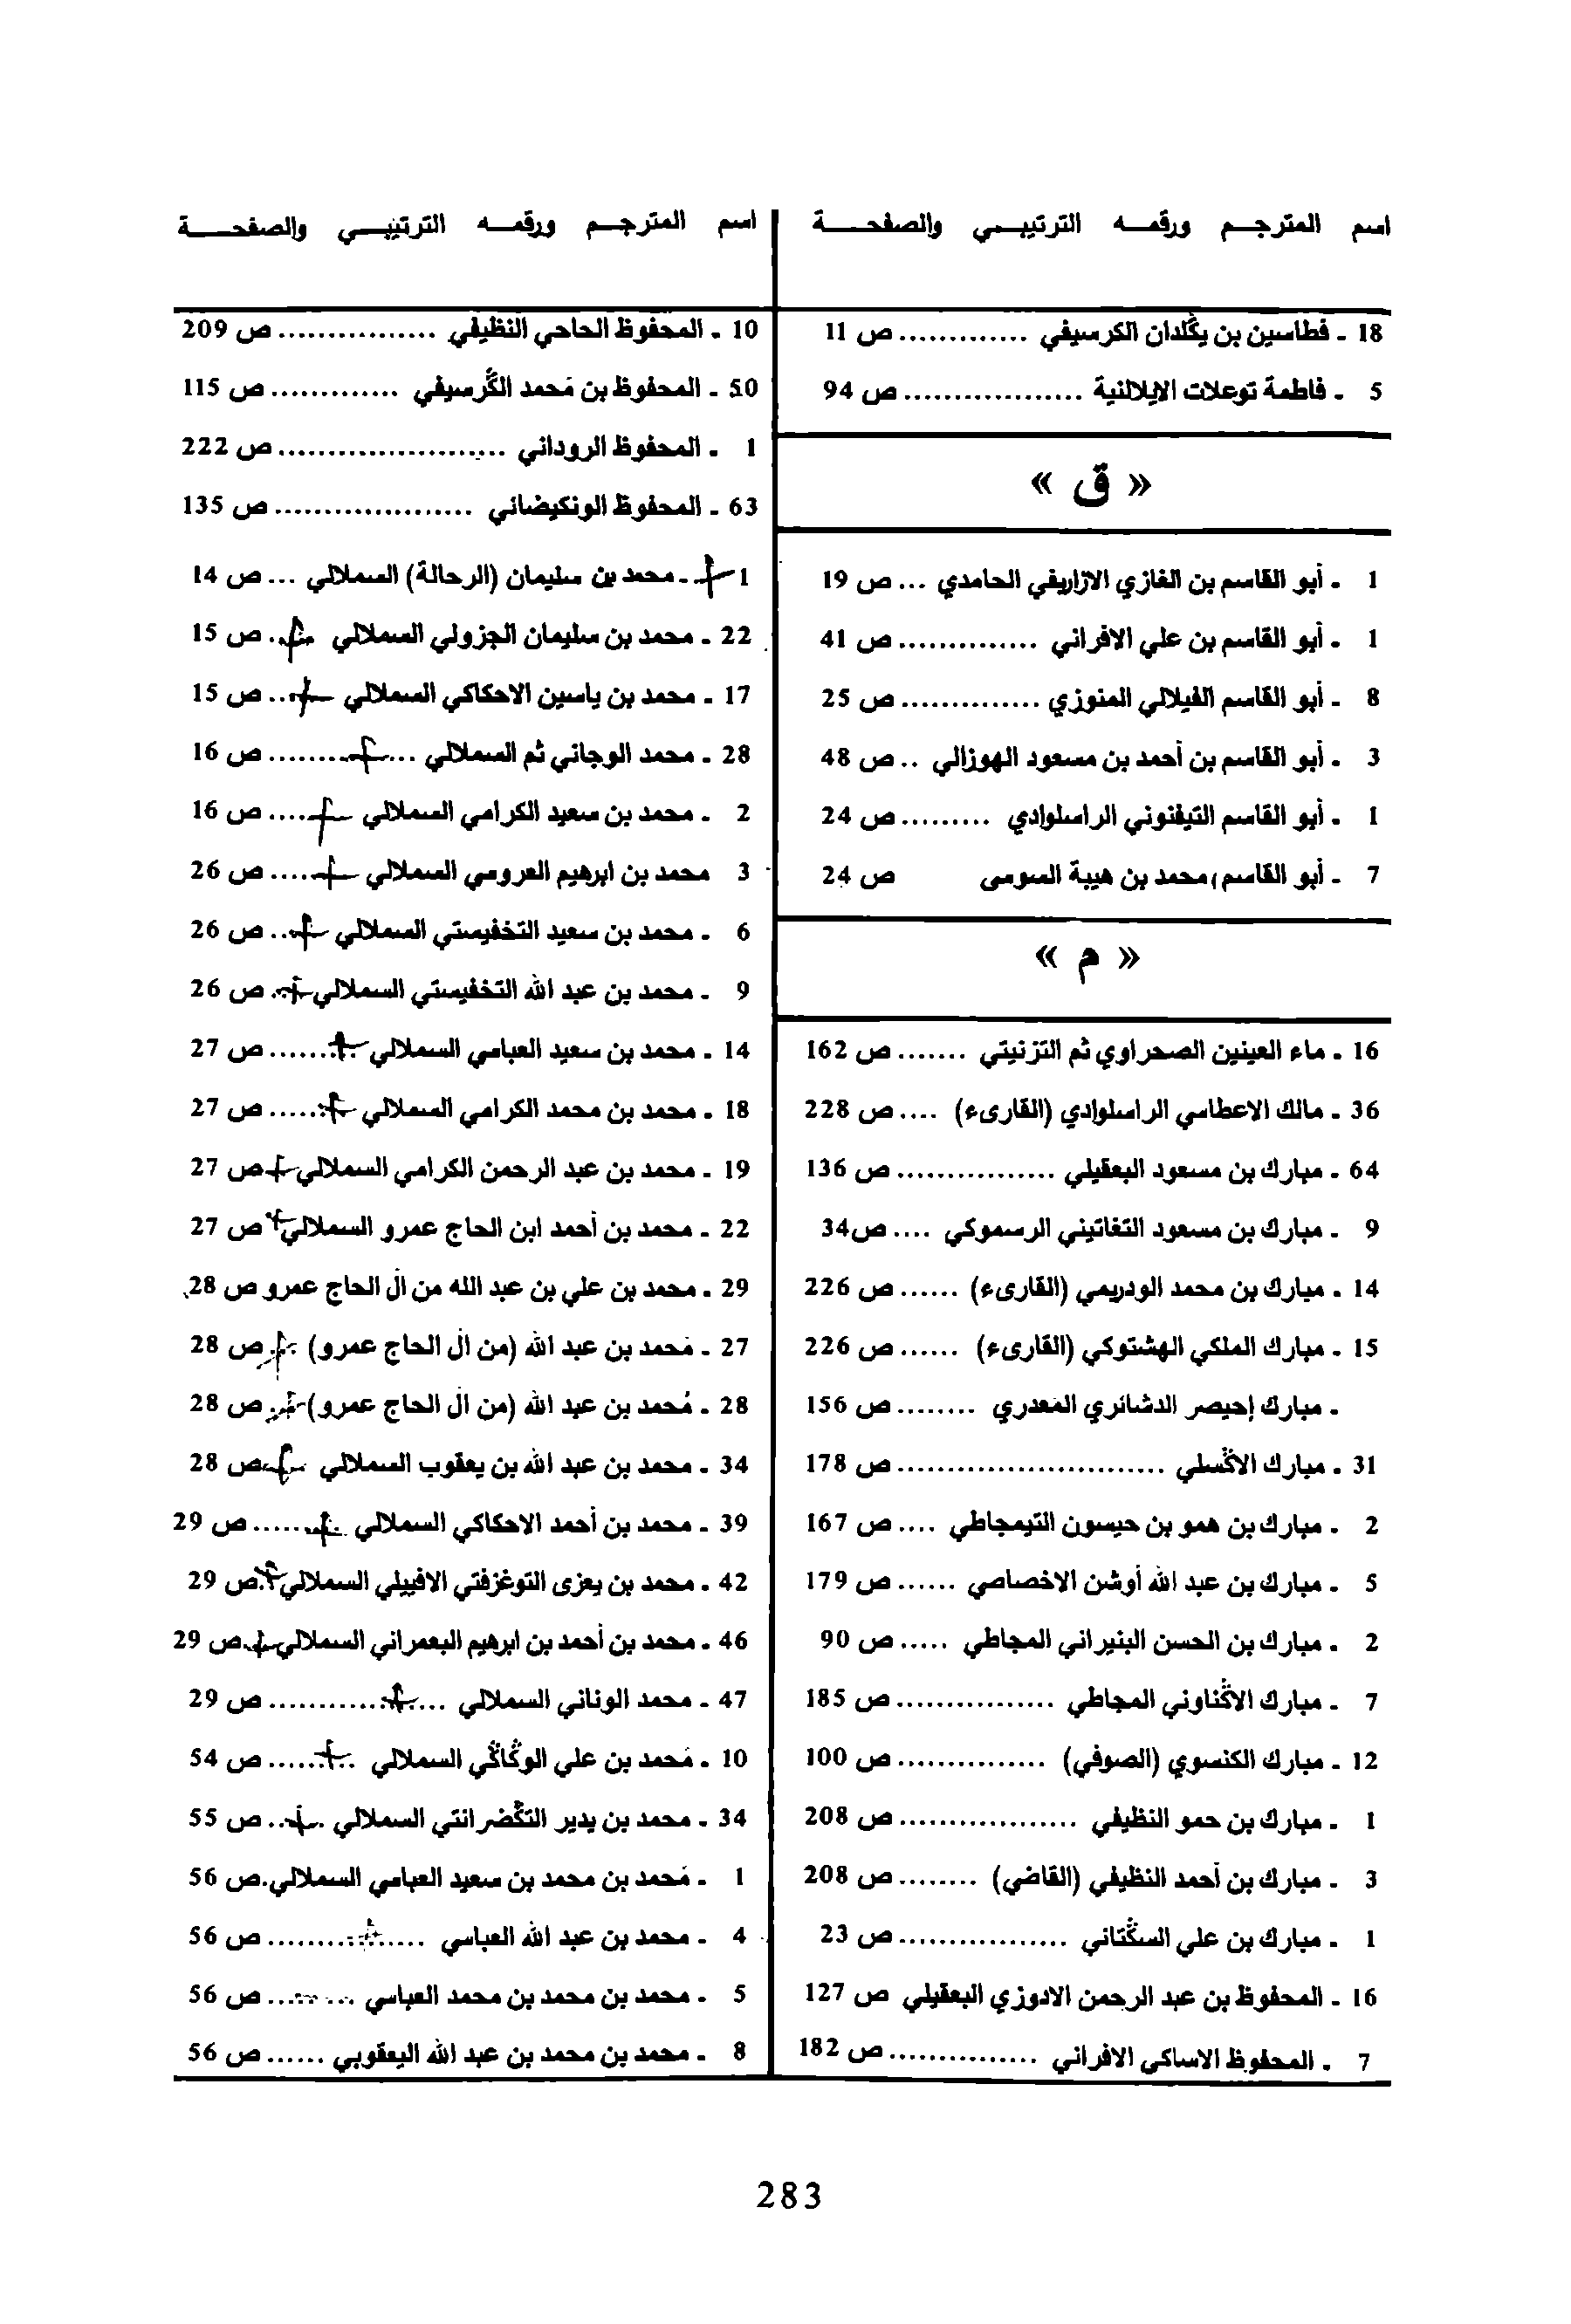 اسم المترجم ورقمه الترتيبي والصفحة
18 - فطاسين بن يڭلدان الكرسيفي ............. ص 11
5 - فاطمة توعلات الايلالنية .................. ص 94
« ق »
1 - أبو القاسم بن الغازي الازاريفي الحامدي ... ص 19
1 - أبو القاسم بن علي الافراني .............. ص 41
8 - أبو القاسم الفيلالي المنوزي .............. ص 25
3 - أبو القاسم بن أحمد بن مسعود الهوزالي .. ص 48
1 - أبو القاسم التيفنوني الراسلوادي ......... ص 24
7 - أبو القاسم، محمد بن هيبة السوسي ص 24
« م »
16 - ماء العينين الصحراوي ثم التزنيتي ....... ص 162
36 - مالك الاعطاسي الراسلوادي (القارىء) .... ص 228
64 - مبارك بن مسعود البعقيلي ................ ص 136
9 - مبارك بن مسعود التغاتيني الرسموكي .... ص34
14 - مبارك بن محمد الودريمي (القارىء) ...... ص 226
15 - مبارك الملكي الهشتوكي (القارىء) ...... ص 226
- مبارك إحيصر الدشائري المعدري ........ ص 156
31 - مبارك الاڭسلي ........................... ص 178
2 - مبارك بن همو بن حيسون التيمجاطي .... ص 167
5 - مبارك بن عبد الله أوشن الاخصاصي ...... ص 179
2 - مبارك بن الحسن البنيراني المجاطي ..... ص 90
7 - مبارك الاڭناوني المجاطي ................ ص 185
12 - مبارك الكنسوي (الصوفي) ............... ص 100
1 - مبارك بن حمو النظيفي .................. ص 208
3 - مبارك بن أحمد النظيفي (القاضي) ........ ص 208
1 - مبارك بن علي السڭتاني ................. ص 23
16 - المحفوظ بن عبد الرحمن الادوزي البعقيلي ص 127
7 - المحفوظ الاساكي الافراني ............... ص 182
اسم المترجم ورقمه الترتيبي والصفحة
10 - المحفوظ الحاحي النظيفي ................ ص 209
50 - المحفوظ بن مَحمد الڭرسيفي ............. ص 115
1 - المحفوظ الروداني ....................... ص 222
63 - المحفوظ الونكيضائي .................... ص 135
1 - محمد بن سليمان (الرحالة) السملالي ... ص 14
22 - محمد بن سليمان الجزولي السملالي .... ص 15
17 - محمد بن ياسين الاحكاكي السملالي .... ص 15
28 - محمد الوجاني ثم السملالي .............. ص 16
2 - محمد بن سعيد الكرامي السملالي ....... ص 16
3 محمد بن ابرهيم العروسي السملالي ....... ص 26
6 - محمد بن سعيد التخفيستي السملالي .... ص 26
9 - محمد بن عبد الله التخفيستي السملالي ... ص 26
14 - محمد بن سعيد العباسي السملالي ....... ص 27
18 - محمد بن محمد الكرامي السملالي ...... ص 27
19 - محمد بن عبد الرحمن الكرامي السملالي ص 27
22 - محمد بن أحمد ابن الحاج عمرو السملالي ص 27
29 - محمد بن علي بن عبد الله من آل الحاج عمرو ص 28
27 - مَحمد بن عبد الله (من آل الحاج عمرو) ... ص 28
28 - مُحمد بن عبد الله (من آل الحاج عمرو) ... ص 28
34 - محمد بن عبد الله بن يعقوب السملالي ... ص 28
39 - محمد بن أحمد الاحكاكي السملالي ........ ص 29
42 - محمد بن يعزى التوغزفتي الافييلي السملالي . ص 29
46 - محمد بن أحمد بن ابرهيم البعمراني السملالي . ص 29
47 - محمد الوناني السملالي ................. ص 29
10 - مَحمد بن علي الوڭاڭي السملالي ........ ص 54
34 - محمد بن يدير التڭضرانتي السملالي .... ص 55
1 - مَحمد بن محمد بن سعيد العباسي السملالي. ص 56
4 - محمد بن عبد الله العباسي ............... ص 56
5 - محمد بن محمد بن محمد العباسي ......... ص 56
8 - محمد بن محمد بن عبد الله اليعقوبي ...... ص 56
283